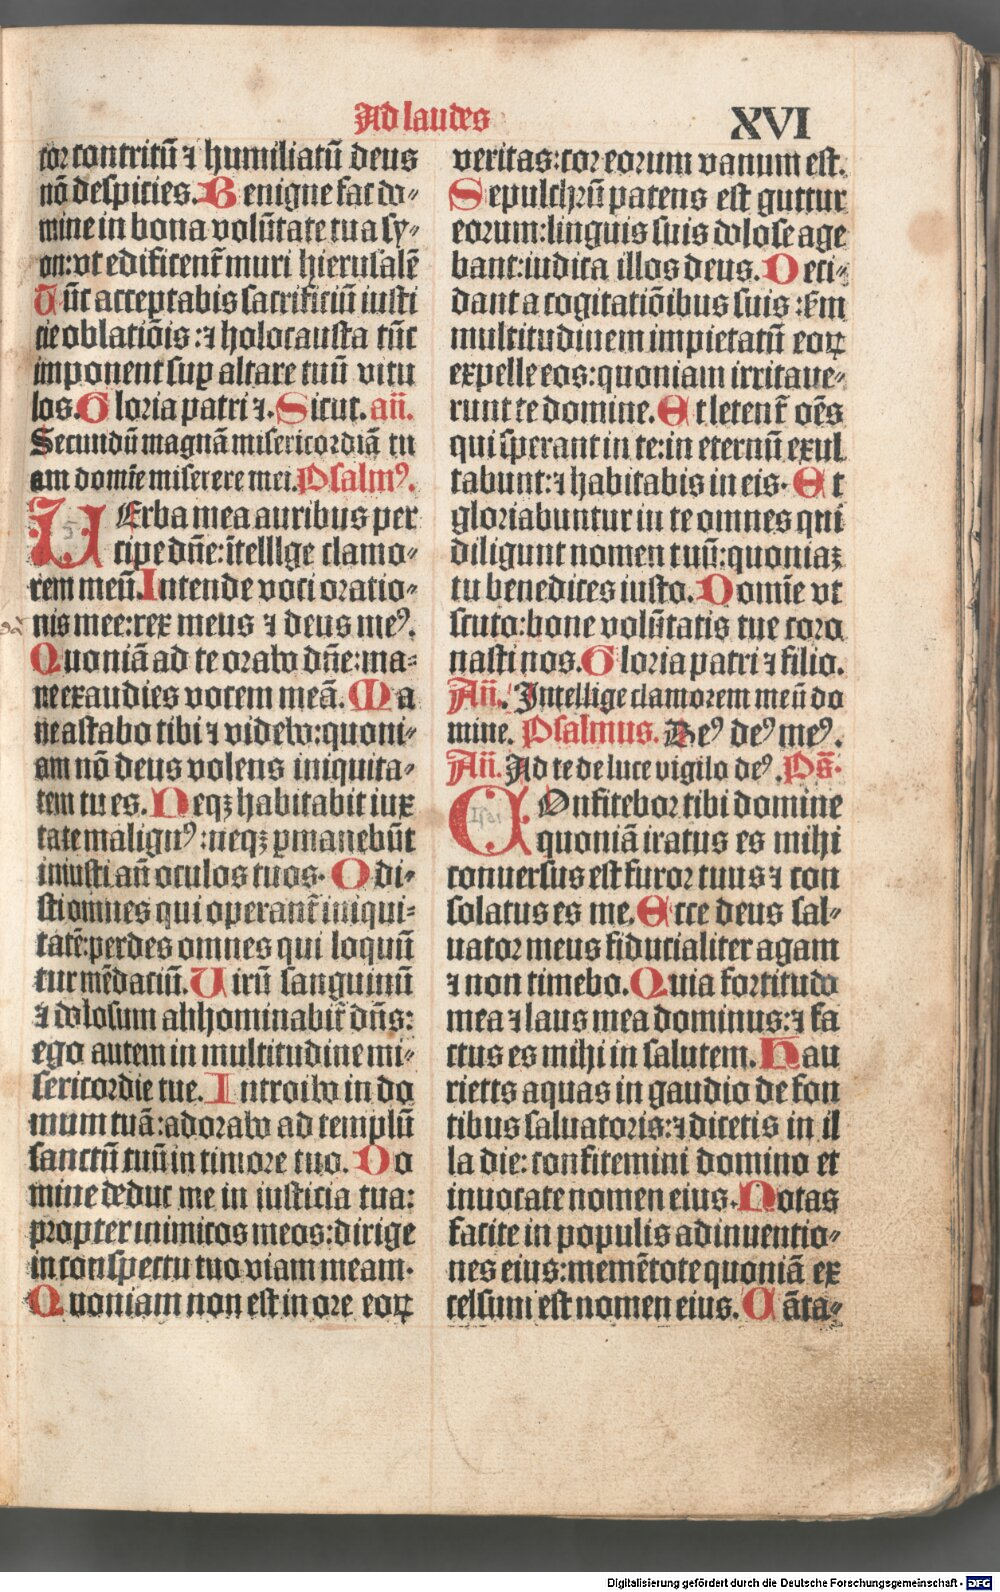 Ad laudes
XVI
cor contritū ⁊ humiliatū deus
nō despicies. Benigne fac do-
mine in bona volūtate tua sy-
on: vt edificent̄ muri hierusalē
Tūc acceptabis sacrificiū iusti
cie oblatiōis: ⁊ holocausta tūc
imponent suꝑ altare tuū vitu
los. Gloria patri ⁊. Sicut. añ.
Secundū magnā misericordiā tu
am domīe miserere mei. Psalmꝰ.
VErba mea auribus per
cipe dn̄e: ītelllge clamo-
rem meū. Intende voci oratio-
nis mee: rex meus ⁊ deus meꝰ.
Quoniā ad te orabo dn̄e: ma-
ne exaudies vocem meā. Ma
ne astabo tibi ⁊ videbo: quoni-
am nō deus volens iniquita-
tem tu es. Neqꝫ habitabit iux
ta te malignꝰ: neqꝫ ꝑmanebūt
iniusti añ oculos tuos. Odi-
sti omnes qui operant̄ iniqui-
tatē: perdes omnes qui loquū
tur mēdaciū. Uirū sanguinū
⁊ dolosum abhominabit̄ dn̄s:
ego autem in multitudine mi-
sericordie tue. Introibo in do
mum tuā: adorabo ad templū
sanctū tuū in timore tuo. Do
mine deduc me in iusticia tua:
propter inimicos meos: dirige
in conspectu tuo viam meam.
Quoniam non est in ore eoꝝ
veritas: cor eorum vanum est.
Sepulchrū patens est guttur
eorum: linguis suis dolose age
bant: iudica illos deus. Deci-
dant a cogitatiōibus suis: scd̄m
multitudinem impietatū eoꝝ
expelle eos: quoniam irritaue-
runt te domine. Et letent̄ oēs
qui sperant in te: in eternū exul
tabunt: ⁊ habitabis in eis. Et
gloriabuntur in te omnes qui
diligunt nomen tuū: quoniaꝫ
tu benedices iusto. Domīe vt
scuto: bone volūtatis tue coro
nasti nos. Gloria patri ⁊ filio.
Añ. Intellige clamorem meū do
mine. Psalmus. Deꝰ deꝰ meꝰ.
Añ. Ad te de luce vigilo deꝰ. Ps̄.
COnfitebor tibi domine
quoniā iratus es mihi
conuersus est furor tuus ⁊ con
solatus es me. Ecce deus sal-
uator meus fiducialiter agam
⁊ non timebo. Quia fortitudo
mea ⁊ laus mea dominus: ⁊ fa
ctus es mihi in salutem. Hau
rietis aquas in gaudio de fon
tibus saluatoris: ⁊ dicetis in il
la die: confitemini domino et
inuocate nomen eius. Notas
facite in populis adinuentio-
nes eius: memētote quoniā ex
celsum est nomen eius. Cāta-
Digitalisierung gefördert durch die Deutsche Forschungsgemeinschaft - DFG